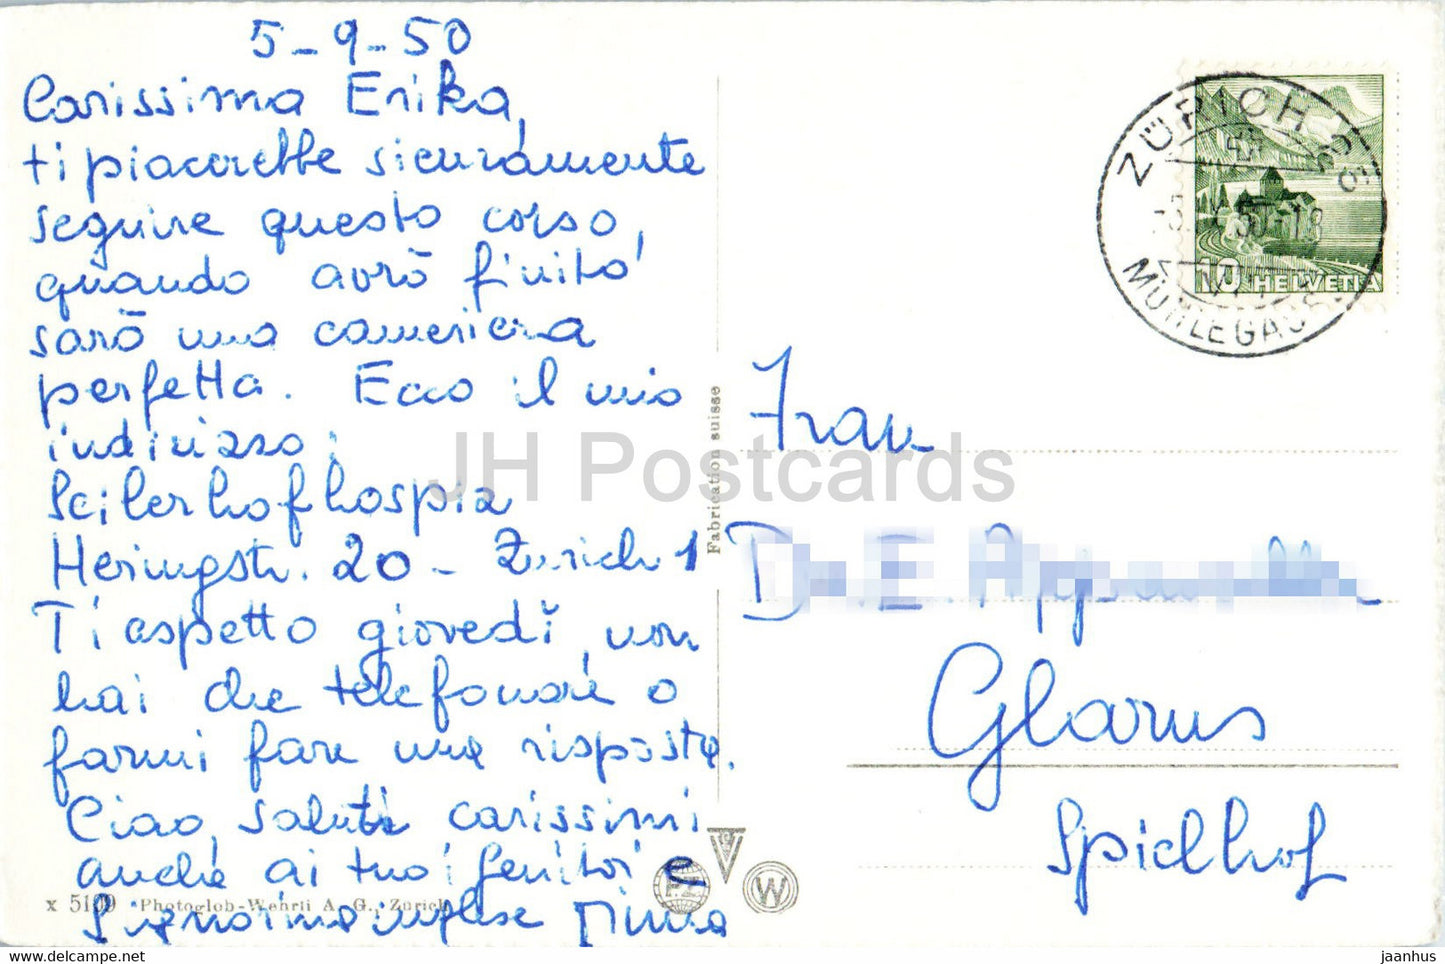 5-9-50
Carissima Erika,
ti piacerebbe sicuramente
seguire questo corso,
quando avrò finito
sarò una cameriera
perfetta. Ecco il mio
indirizzo:
Seilerhofhospiz
Heringstr. 20 - Zurich 1
Ti aspetto giovedì, non
hai che telefonare o
farmi fare una risposta.
Ciao, saluti carissimi
anche ai tuoi genitori e
Signorina inglese Mima
x 5109 Photoglob-Wehrli A. G., Zürich
Fabrication suisse
PZ
W
ZÜRICH
MÜHLEGASSE
10 HELVETIA
Frau
Glarus
Spielhof
JH Postcards
hipstamp.com
jaanhus